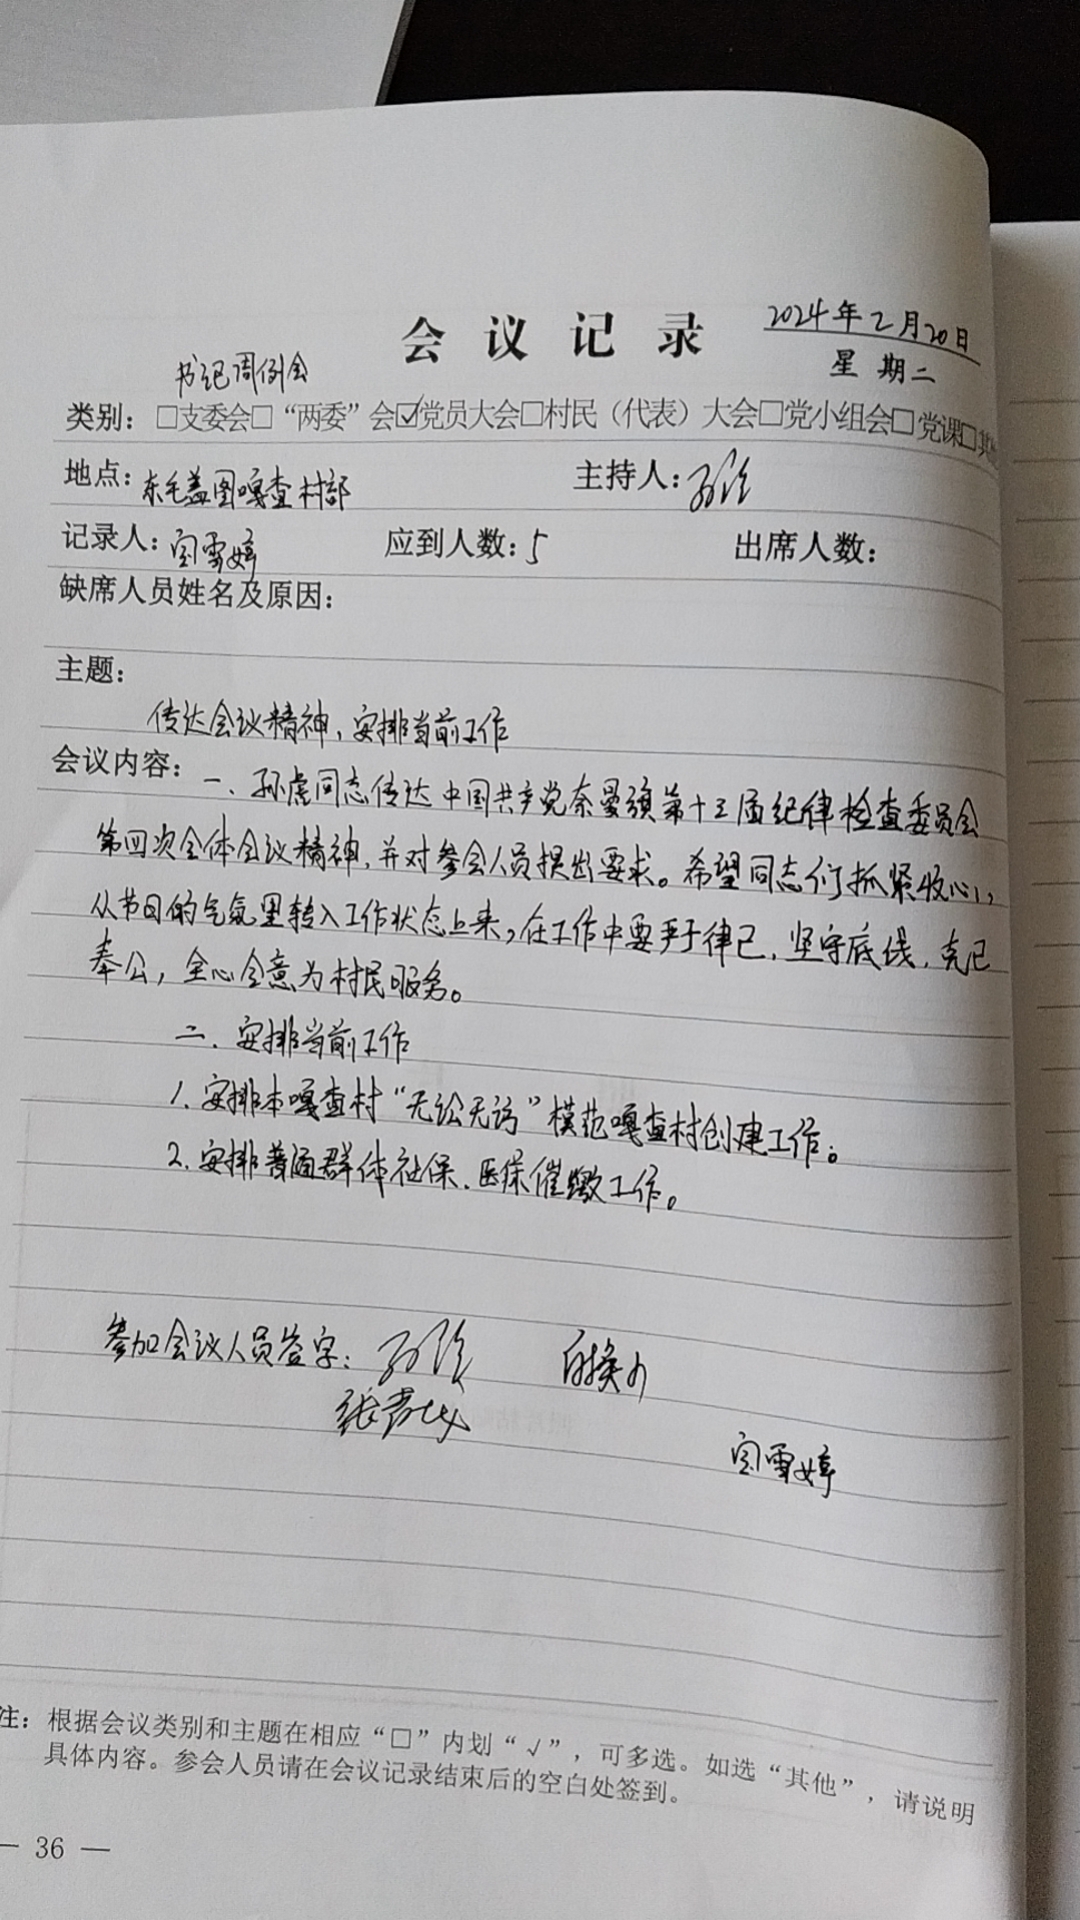 会议记录
2024年2月20日
星期二
书记周例会
类别：□支委会□“两委”会☑党员大会□村民（代表）大会□党小组会□党课□其
地点：东毛盖图嘎查村部 主持人：
记录人：宝雪婷 应到人数：5 出席人数：
缺席人员姓名及原因：
主题：
传达会议精神，安排当前工作
会议内容：一、孙虎同志传达中国共产党奈曼旗第十三届纪律检查委员会
第四次全体会议精神，并对参会人员提出要求。希望同志们抓紧收心，
从节日的气氛里转入工作状态上来，在工作中要严于律己，坚守底线，克己
奉公，全心全意为村民服务。
二、安排当前工作
1、安排本嘎查村“无讼无访”模范嘎查村创建工作。
2、安排普通群体社保、医保催缴工作。
参加会议人员签字：
宝雪婷
注：根据会议类别和主题在相应“□”内划“√”，可多选。如选“其他”，请说明
具体内容。参会人员请在会议记录结束后的空白处签到。
— 36 —